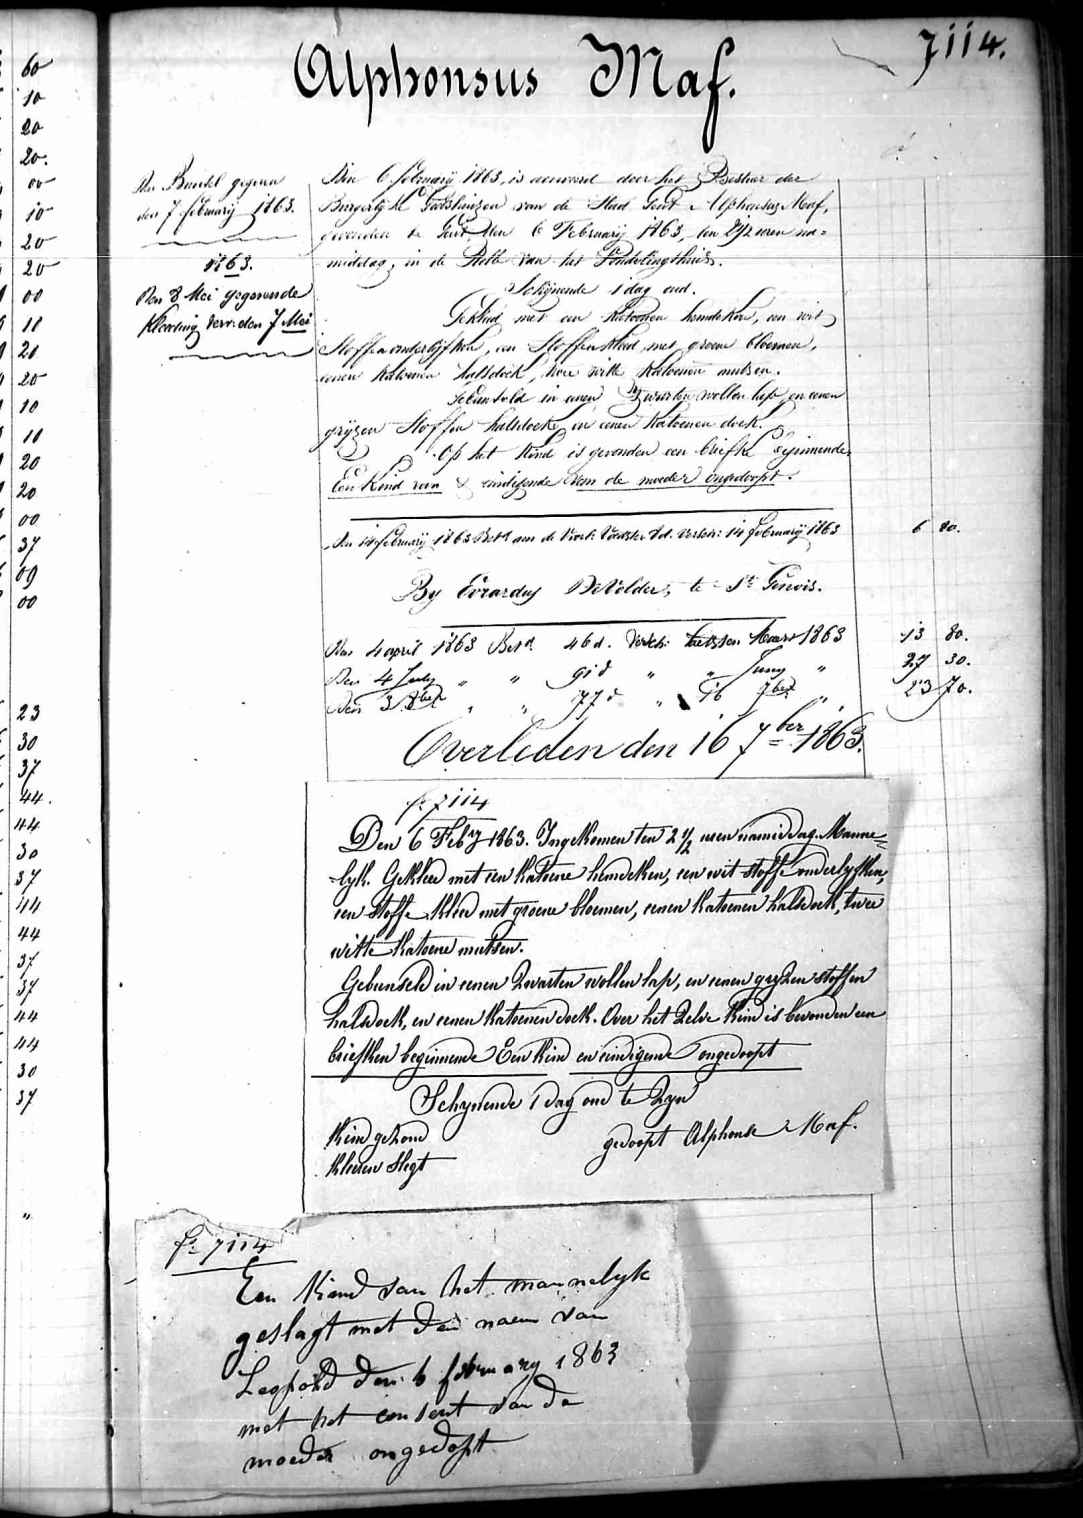 60
10
20
20.
00
10
20
20
00
10
20
20
10
10
20
20
00
37
09
00
23
30
37
44.
44
30
37
44
44
37
37
44
44
30
37
"
7114.
Alphonsus Maf.
Den Bundel gegeven
den 7 february 1863.
1863.
Den 8 Mei gegevende
kleeding verv: den 7 Mei
Den 6 february 1863, is aenveerd door het Bestier der
Burgerlyke Godshuizen van de Stad Gent Alphonsus Maf,
gevonden te Gent den 6 February 1863, ten 2 1/2 uren na=
middag, in de Rolle van het Vondelinghuis.
Schijnende 1 dag oud.
Gekleed met een katoenen hemdeken, een wit
stoffen onderlyfken, een stoffen kleed met groene bloemen,
eenen katoenen halsdoek, twee witte katoenen mutsen.
Gebunseld in eenen zwarten wollen lap, en eenen
gryzen stoffen halsdoek, en eenen katoenen doek.
Op het kind is gevonden een briefke beginnende
Een Kind van & eindigende van de moeder ongedoopt.
Den 14 february 1863 Betd aen de Voedster 8d. versch: 14 february 1863 6 80.
By Evardus DeVolder, te St Genois.
Den 4 april 1863 Betd. 46 d. versch: Maart 1863 13 80.
Den 4 July " " 91 d " " Juny " 27 30.
Den 3 8ber " " 77 d " 16 7ber " 23 70.
Overleden den 16 7ber 1863.
fo 7114
Den 6 Feby 1863. Ingekomen ten 2 1/2 uren namiddag. Manne=
lyk. Gekleed met een katoene hemdeken, een wit stoffe onderlyfken,
een stoffe kleed met groene bloemen, eenen katoenen halsdoek, twee
witte katoene mutsen.
Gebunseld in eenen zwarten wollen lap, en eenen gryzen stoffen
halsdoek, en eenen katoenen doek. Over het zelve kind is bevonden een
briefken beginnende Een kind en eindigende ongedoopt
Schynende 1 dag oud te zyn
kind gezond gedoopt Alphonse Maf.
kleeren slegt
fo 7114
Een Kiend van het mannelyk
geslagt met den naem van
Leopold den 6 february 1863
met het consent van de
moeder ongedopt